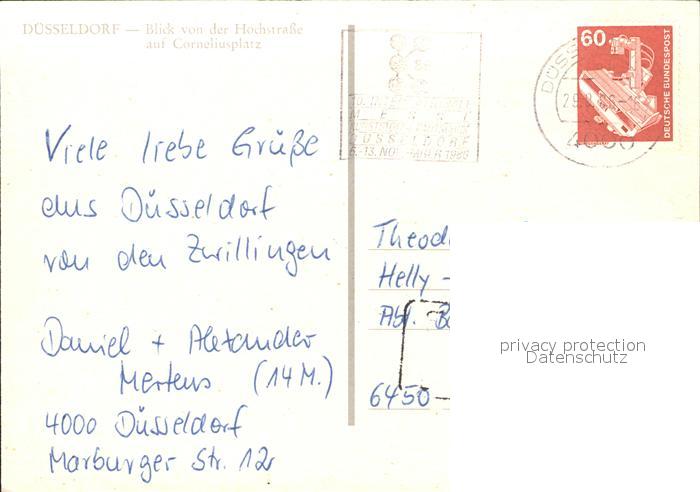 DÜSSELDORF — Blick von der Hochstraße
auf Corneliusplatz
60
DEUTSCHE BUNDESPOST
DÜSS
4000
DÜSSELDORF
Viele liebe Grüße
aus Düsseldorf
von den Zwillingen
Daniel + Alexander
Mertens (14 M.)
4000 Düsseldorf
Marburger Str. 12
Theod
Helly -
Abt. B
6450-
privacy protection
Datenschutz